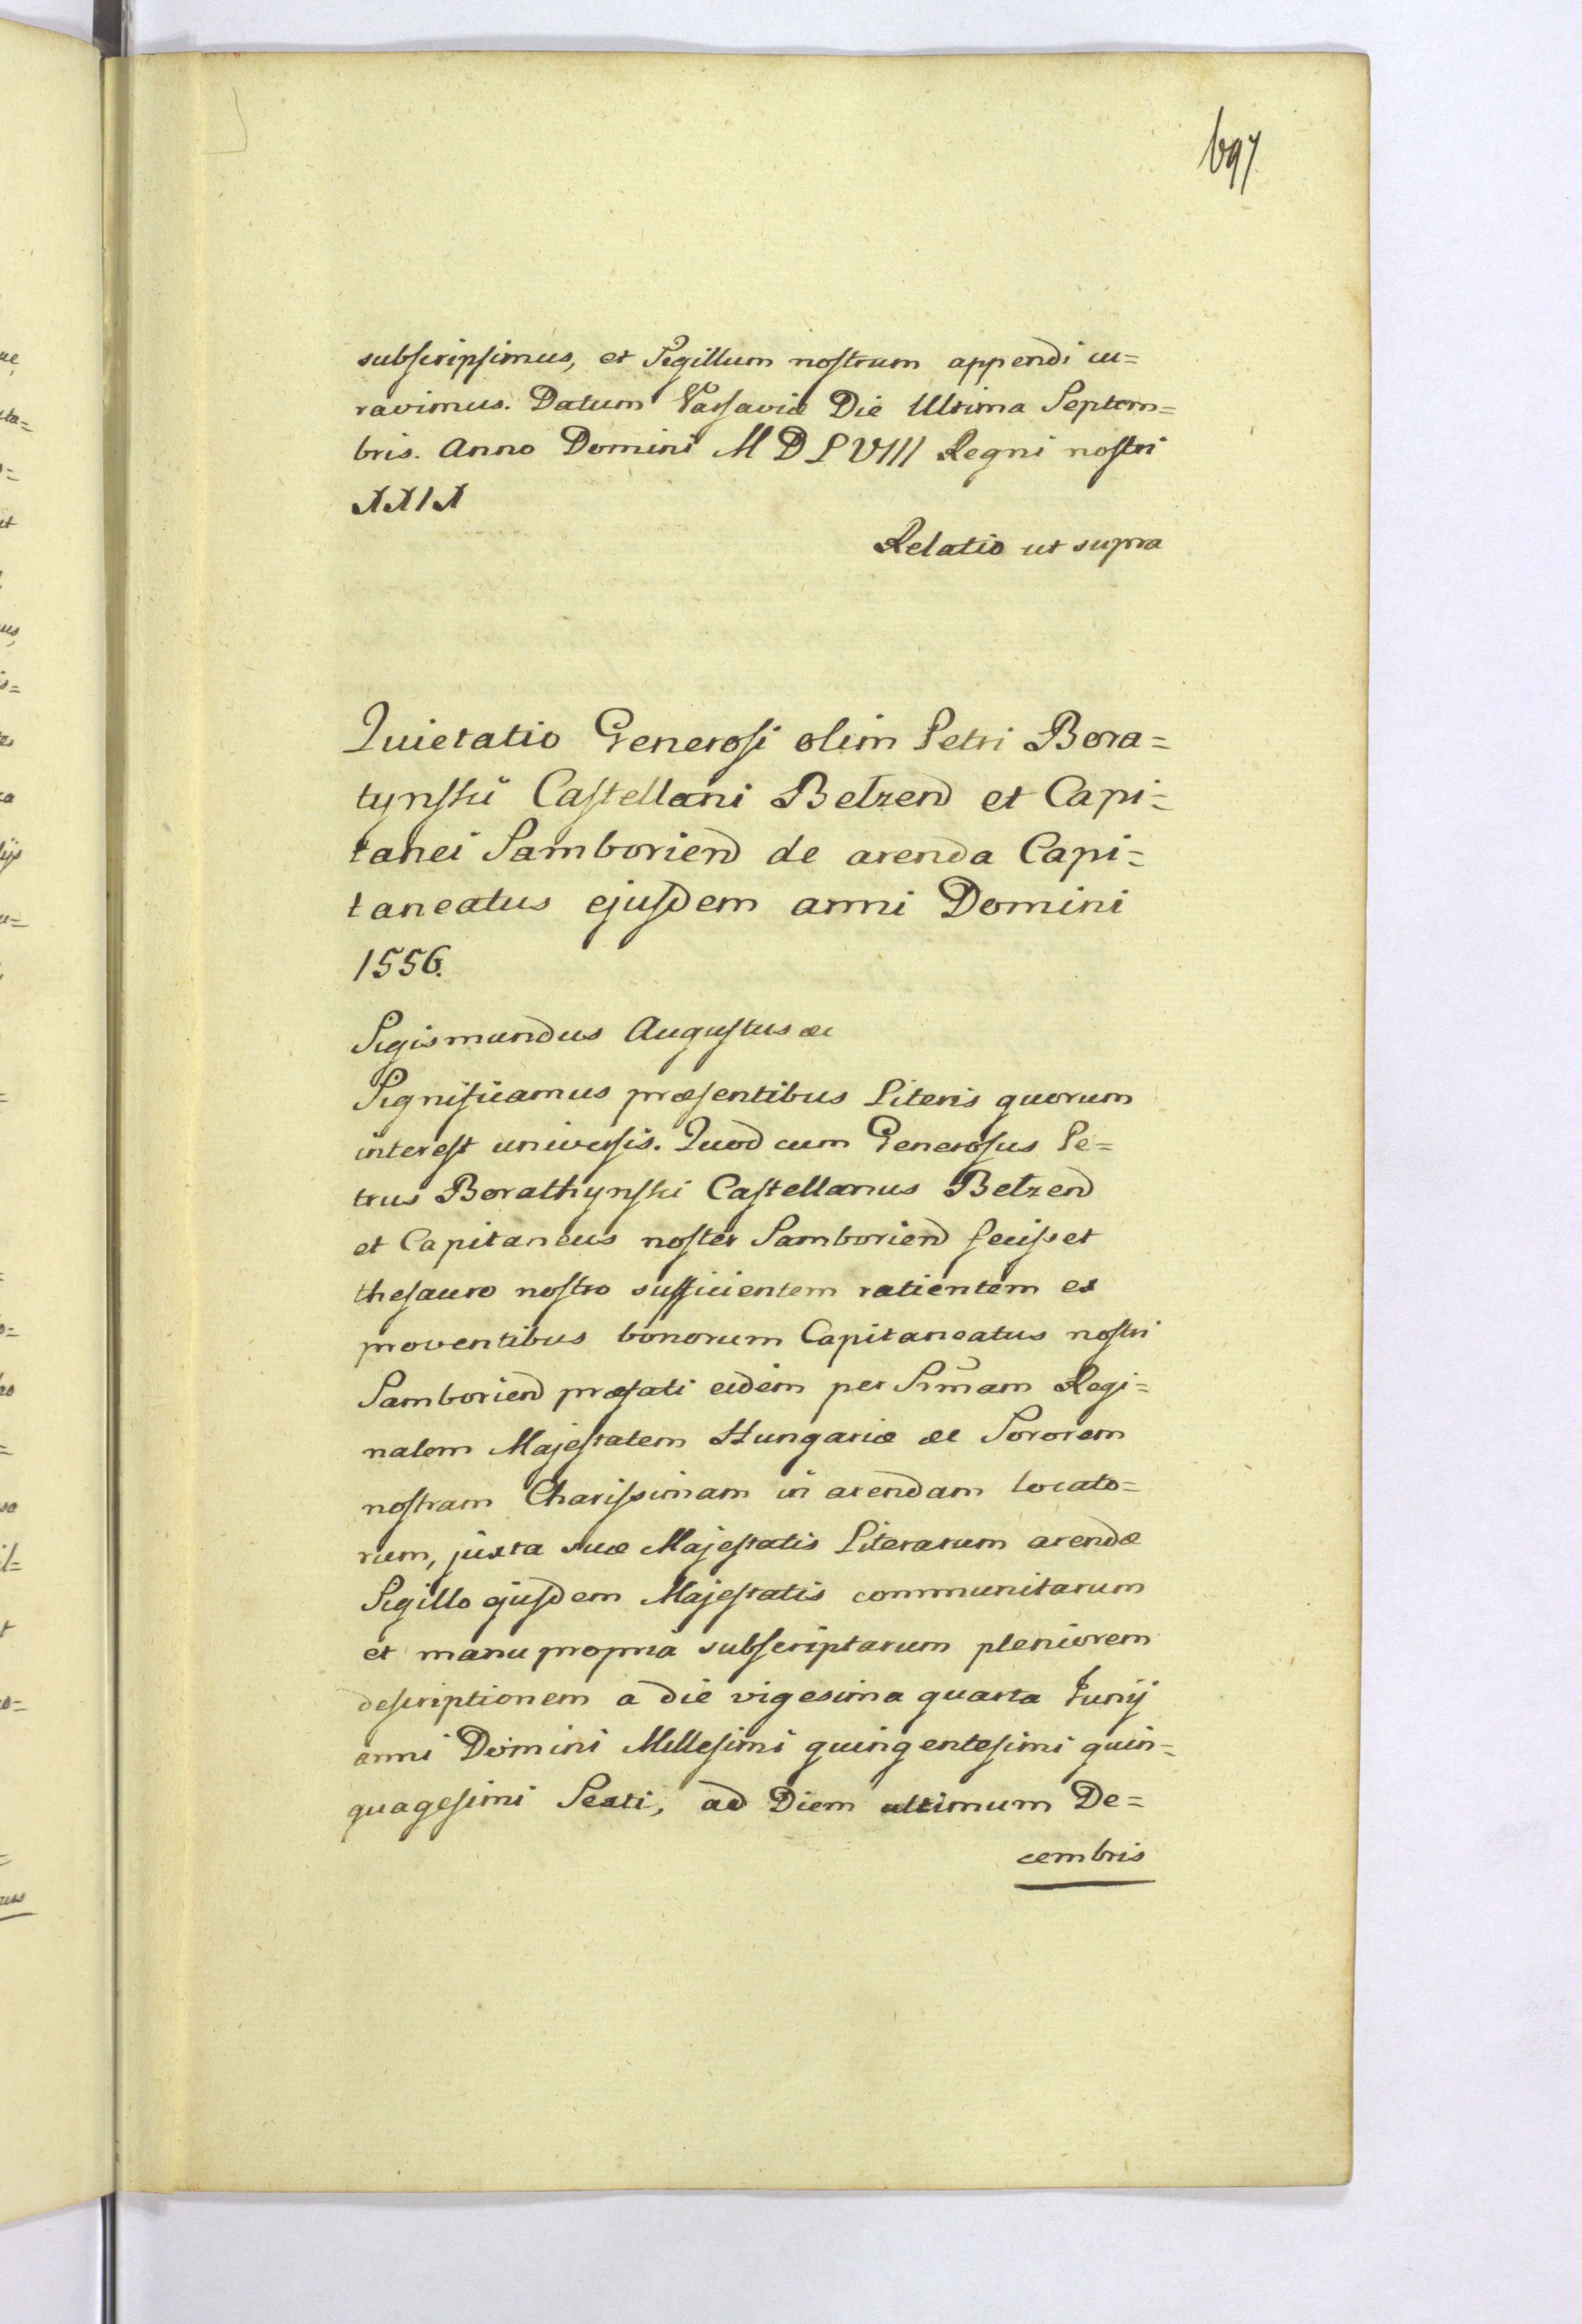 697
subscripsimus, et Sigillum nostrum appendi cu=
ravimus. Datum Varsaviæ Die Ultima Septem=
bris. Anno Domini M D L VIII Regni nostri
XXIX
Relatio ut supra
Quietatio Generosi olim Petri Bora=
tynskii Castellani Belzend et Capi=
tanei Samboriend de arenda Capi=
taneatus ejusdem anni Domini
1556.
Sigismundus Augustus &c
Significamus præsentibus Literis quorum
interest universis. Quod cum Generosus Pe=
trus Borathynski Castellanus Belzend
et Capitaneus noster Samboriend fecisset
thesauro nostro sufficientem ratientem ex
proventibus bonorum Capitaneatus nostri
Samboriend præfati eidem per Srm̃am Regi=
nalem Majestatem Hungariæ &c Sororem
nostram Charissimam in arendam locato=
rum, juxta suæ Majestatis Literarum arendæ
Sigillo ejusdem Majestatis communitarum
et manu propria subscriptarum pleniorem
descriptionem a die vigesima quarta Junij
anni Domini Millesimi quingentesimi quin=
quagesimi Sexti, ad Diem ultimum De=
cembris